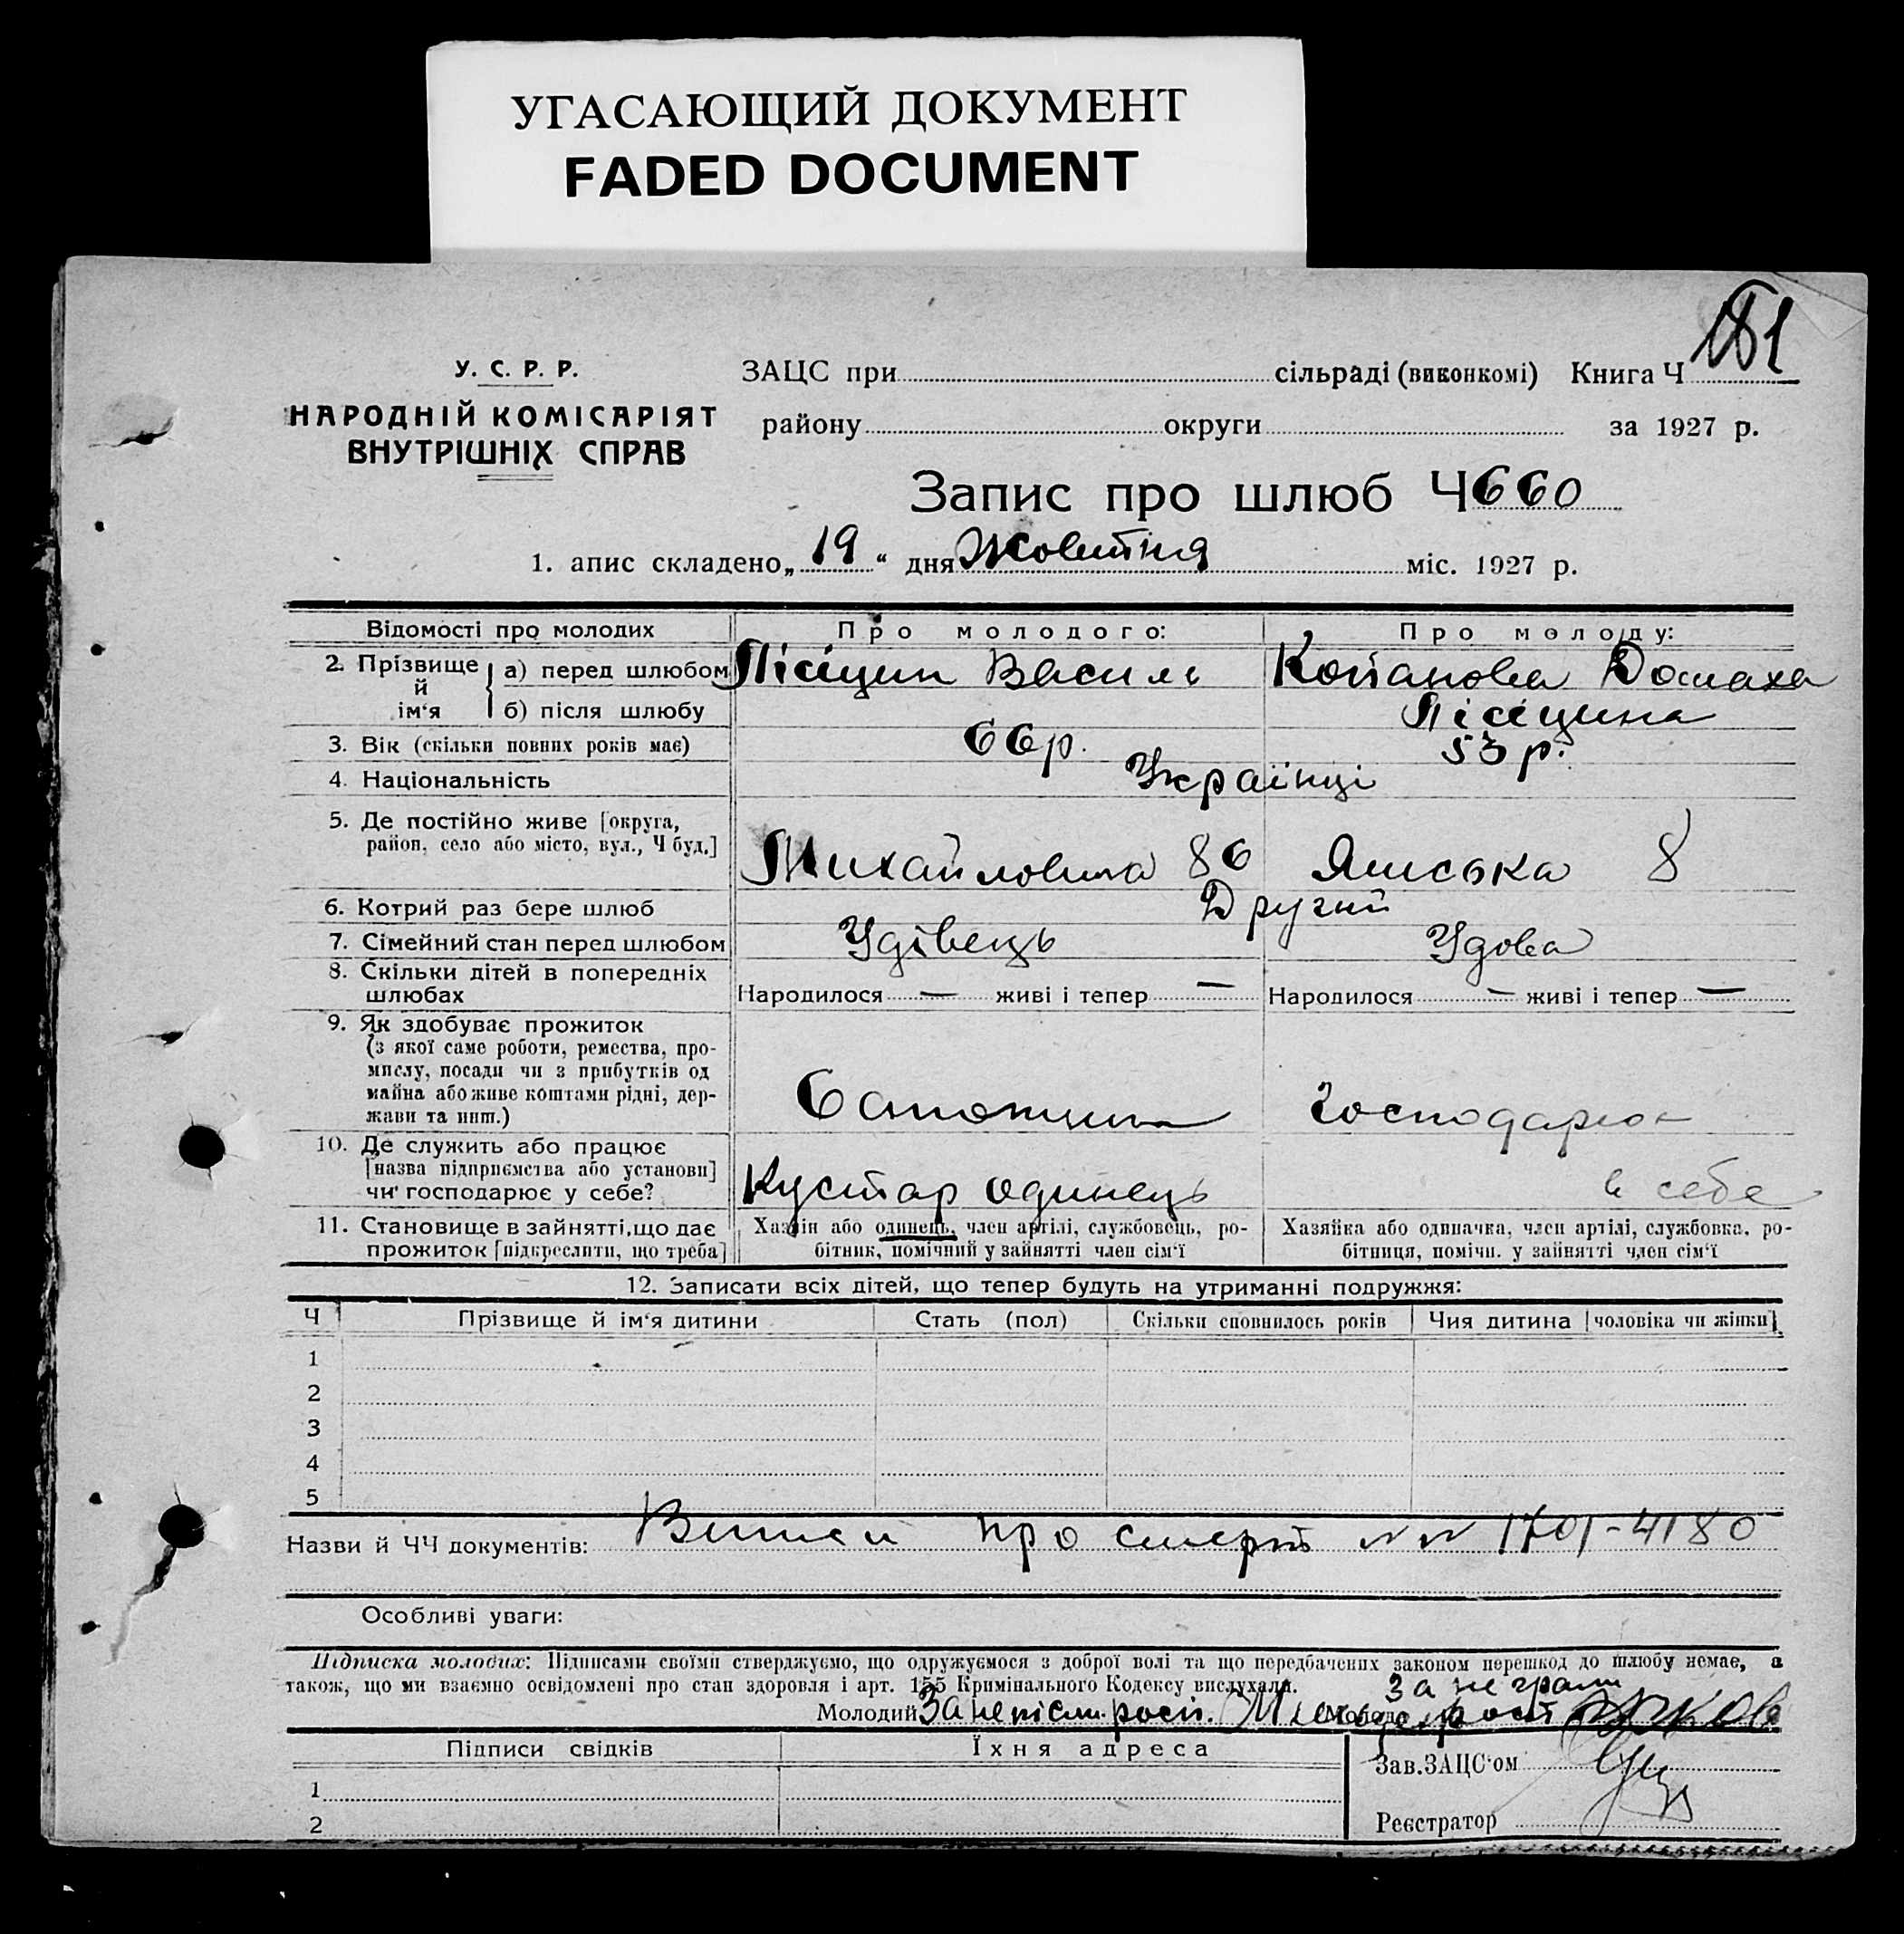 УГАСАЮЩИЙ ДОКУМЕНТ
FADED DOCUMENT
181
У. С. Р. Р.
НАРОДНІЙ КОМІСАРІЯТ
ВНУТРІШНІХ СПРАВ
ЗАЦС при сільраді (виконкомі) Книга Ч
району округи за 1927 р.
Запис про шлюб Ч 660
1. апис складено „19“ дня Жовтня міс. 1927 р.
Відомості про молодих Про молодого: Про молоду:
2. Прізвище й ім‘я а) перед шлюбом Лісіцин Василь Копанова Домаха
б) після шлюбу Лісіцина
3. Вік (скільки повних років має) 66р. 53 р.
4. Національність Українці
5. Де постійно живе [округа,
район, село або місто, вул., Ч буд.] Михайловка 86 Ямська 8
6. Котрий раз бере шлюб Другий
7. Сімейний стан перед шлюбом Удівець Удова
8. Скільки дітей в попередніх
шлюбах Народилося — живі і тепер — Народилося — живі і тепер —
9. Як здобуває прожиток
(з якої саме роботи, ремества, про-
мислу, посади чи з прибутків од
майна або живе коштами рідні, дер-
жави та инш.) Сапожник Господарює
10. Де служить або працює
[назва підприємства або установи]
чи господарює у себе? Кустар одинець в себе
11. Становище в зайнятті, що дає
прожиток [підкреслити, що треба]
Хазяїн або одинець, член артілі, службовець, ро-
бітник, помічний у зайнятті член сім‘ї
Хазяйка або одиначка, член артілі, службовка, ро-
бітниця, помічн. у зайнятті член сім‘ї
12. Записати всіх дітей, що тепер будуть на утриманні подружжя:
Ч Прізвище й ім‘я дитини Стать (пол) Скільки сповнилось років Чия дитина [чоловіка чи жінки]
1
2
3
4
5
Назви й ЧЧ документів: Виписи про смерть NN 1701-4180
Особливі уваги:
Підписка молодих: Підписами своїми стверджуємо, що одружуємося з доброї волі та що передбачених законом перешкод до шлюбу немає, а
також, що ми взаємно освідомлені про стан здоровля і арт. 155 Кримінального Кодексу вислухали.
за неграм.
Молодий За непісм. росп. Молода рост
Підписи свідків Їхня адреса
Зав. ЗАЦС‘ом
1
Реєстратор
2